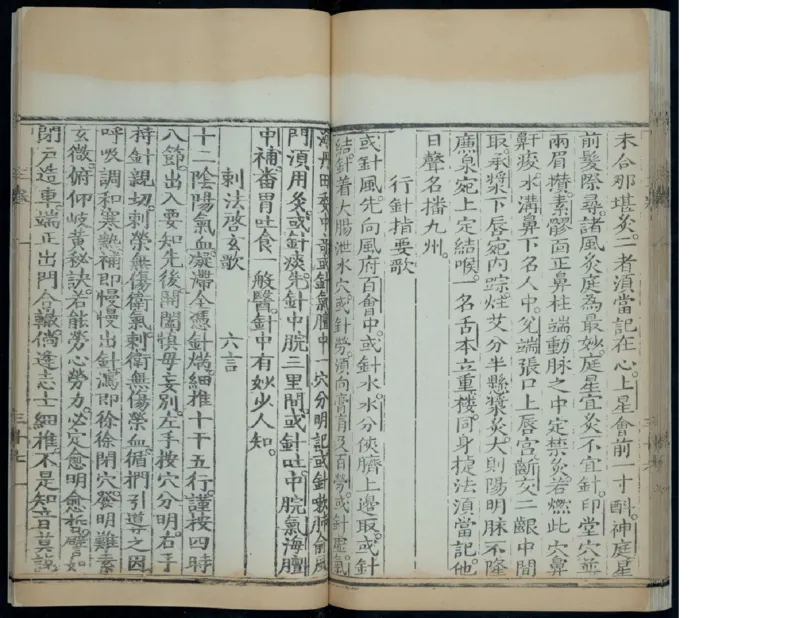 未合那堪灸二者須當記在心上星會前一寸斟神庭星
前髮際尋諸風灸庭為最妙庭星宜灸不宜針印堂穴並
兩眉攢素髎面正鼻柱端動脉之中定禁灸若燃此穴鼻
鼾痠水溝鼻下名人中兌端張口上唇宮齗交二齦中間
取承漿下唇宛內踪炷艾分半懸漿灸大則陽明脉不隆
廉泉宛上定結喉一名舌本立重樓同身捷法須當記他
日聲名播九州
行針指要歌
或針風先向風府百會中或針水水分俠臍上邊取或針
結針着大腸泄水穴或針勞須向膏肓及百勞或針虛氣
海丹田委中奇或針氣膻中一穴分明記或針嗽肺俞風
門須用灸或針痰先針中脘三里間或針吐中脘氣海膻
中補番胃吐食一般醫針中有妙少人知
刺法啓玄歌 六言
十二陰陽氣血凝滯全憑針焫細推十干五行謹按四時
八節出入要知先後開闔慎毋妄別左手按穴分明右手
持針親切刺榮無傷衛氣刺衛無傷榮血循捫引導之因
呼吸調和寒熱補即慢慢出針瀉即徐徐閉穴發明難素
玄微俯仰岐黃秘訣若能勞心勞力必定愈明愈哲譬如
閉戶造車端正出門合轍倘逢志士細推不是知音莫說